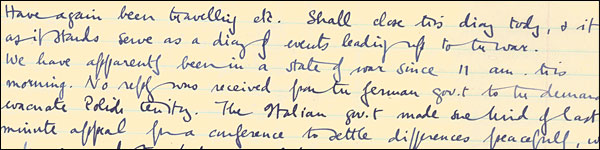 Have again been travelling etc. Shall close this diary today, & it
as it stands serve as a diary of events leading up to the war.
We have apparently been in a state of war since 11 am. this
morning. No reply was received from the German gov.t to the demand
evacuate Polish territory. The Italian gov.t made some kind of last
minute appeal for a conference to settle differences peacefully, w